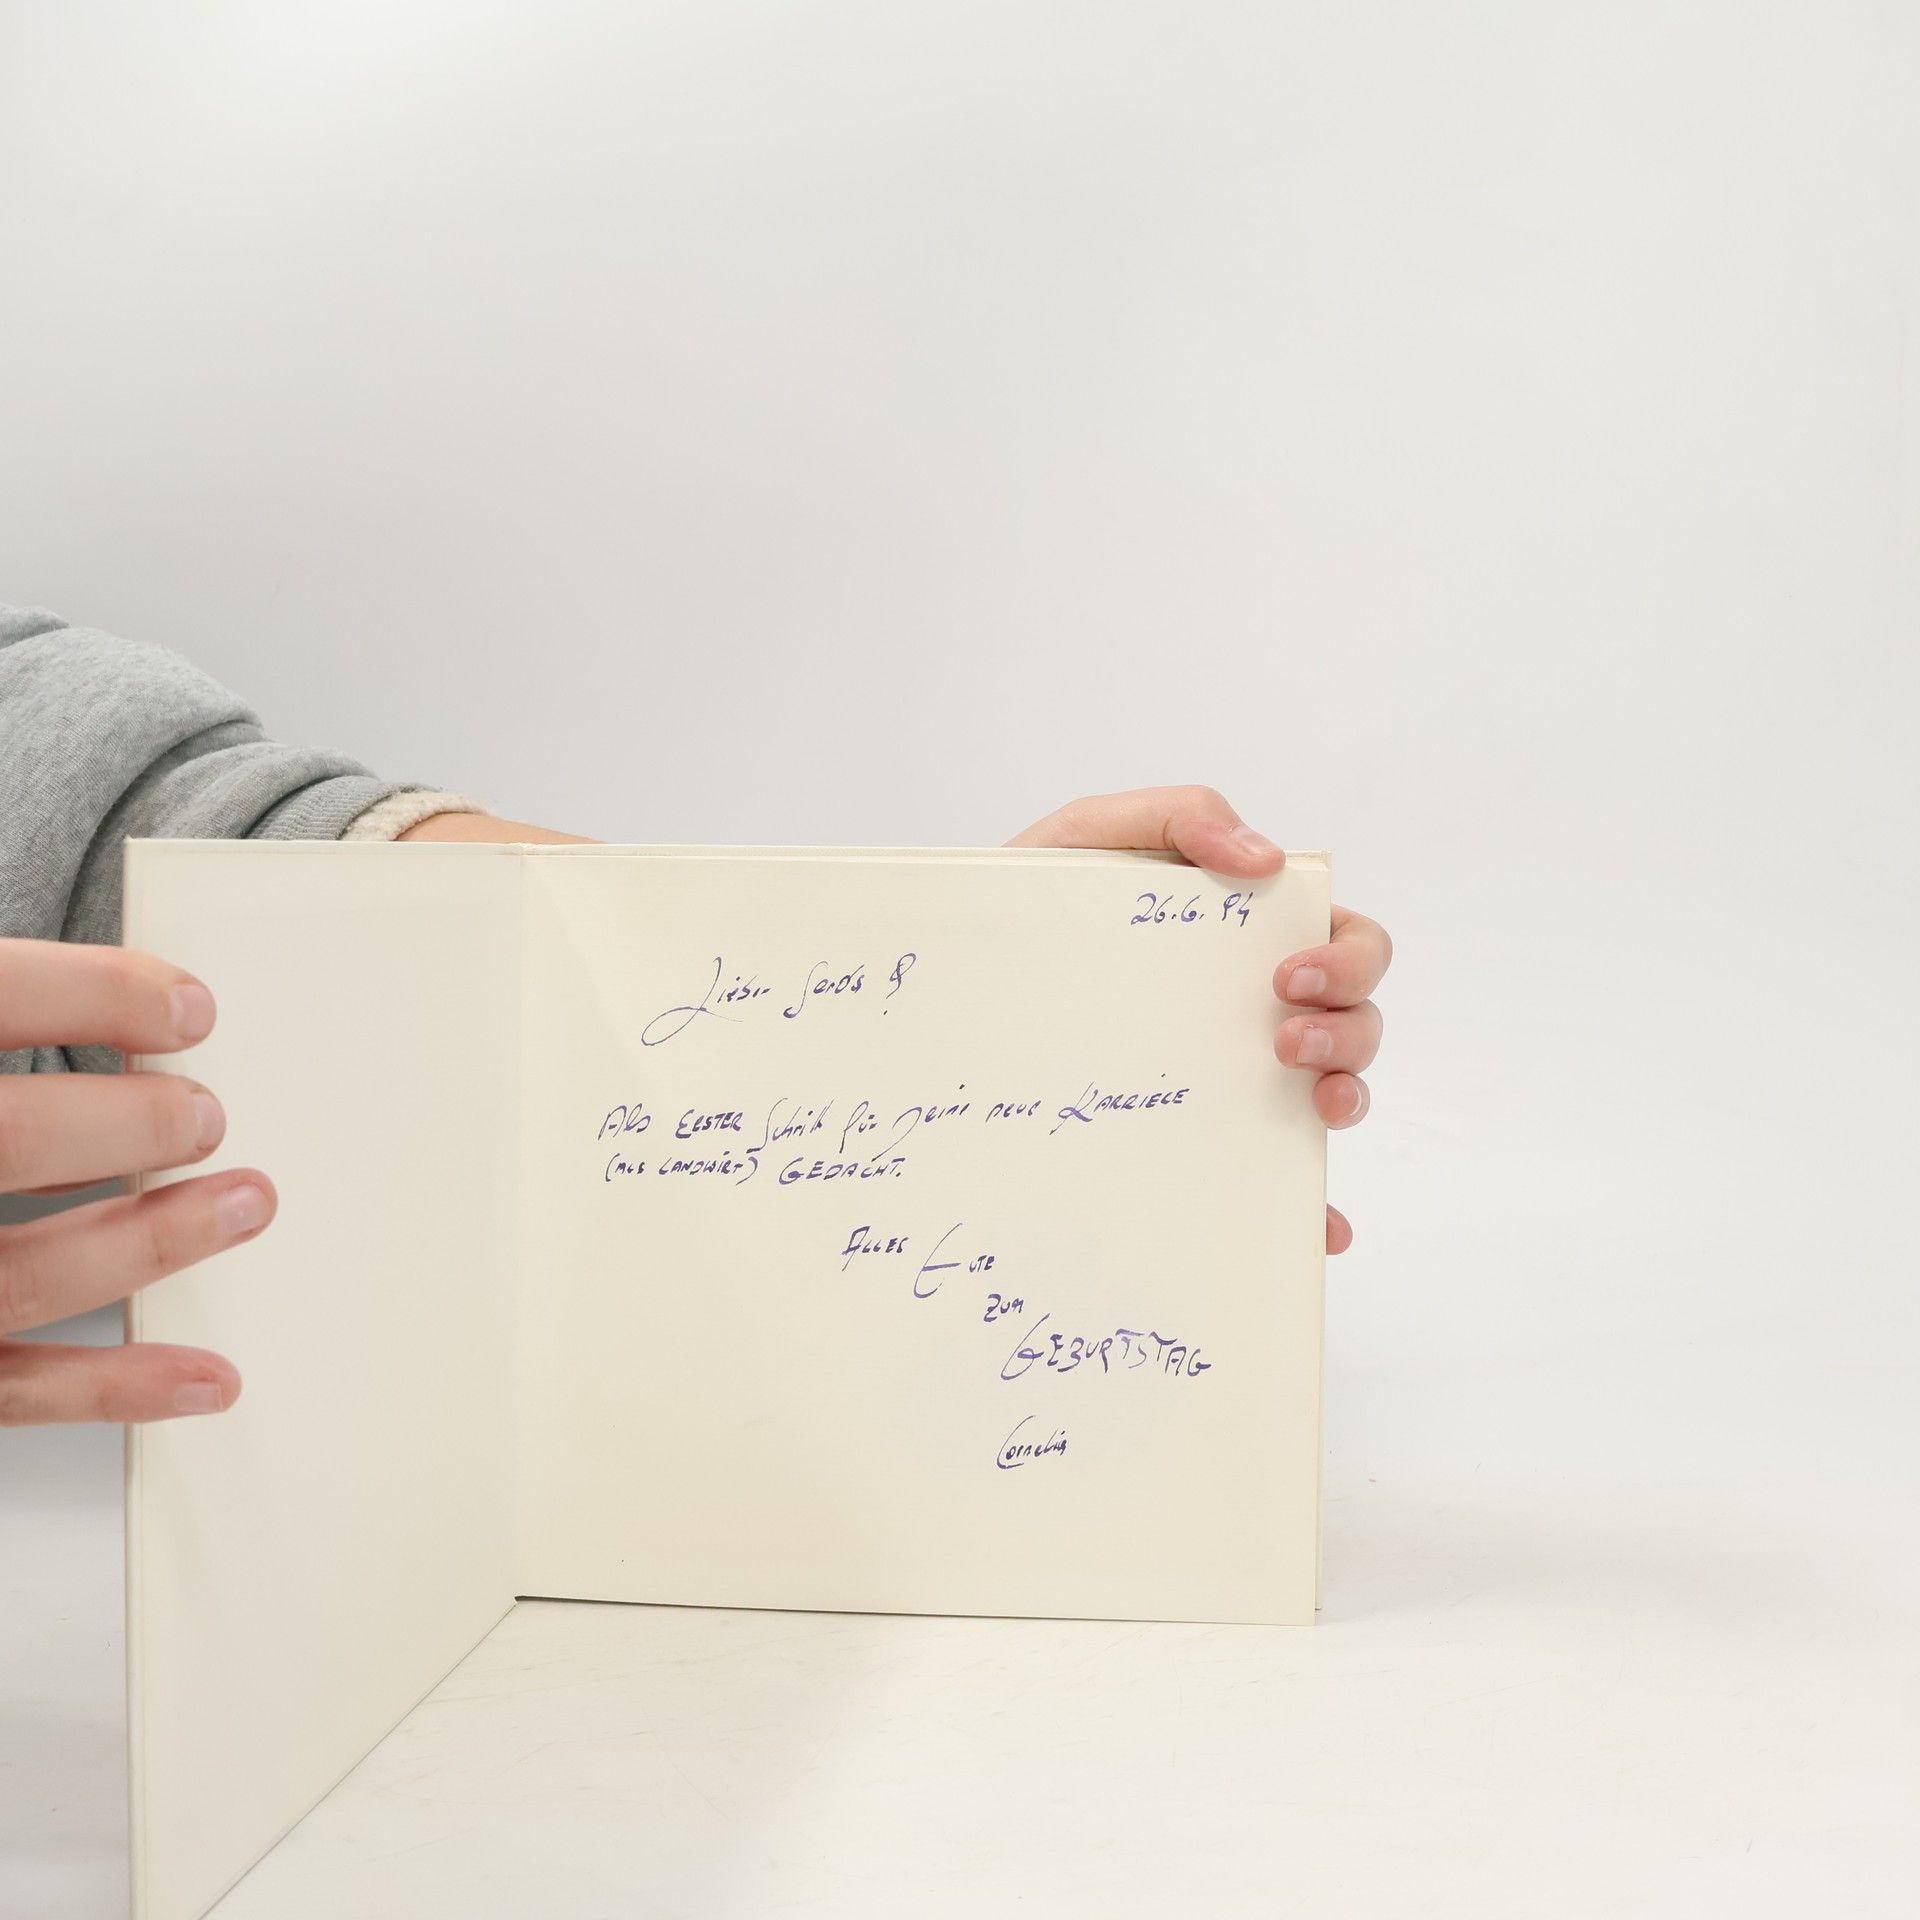 26.6.94
Lieber
Als ERSTER Schritt für Deine neue KARRIERE
(ALS LANDWIRT) GEDACHT.
ALLES GUTE
ZUM
GEBURTSTAG
Cornelia